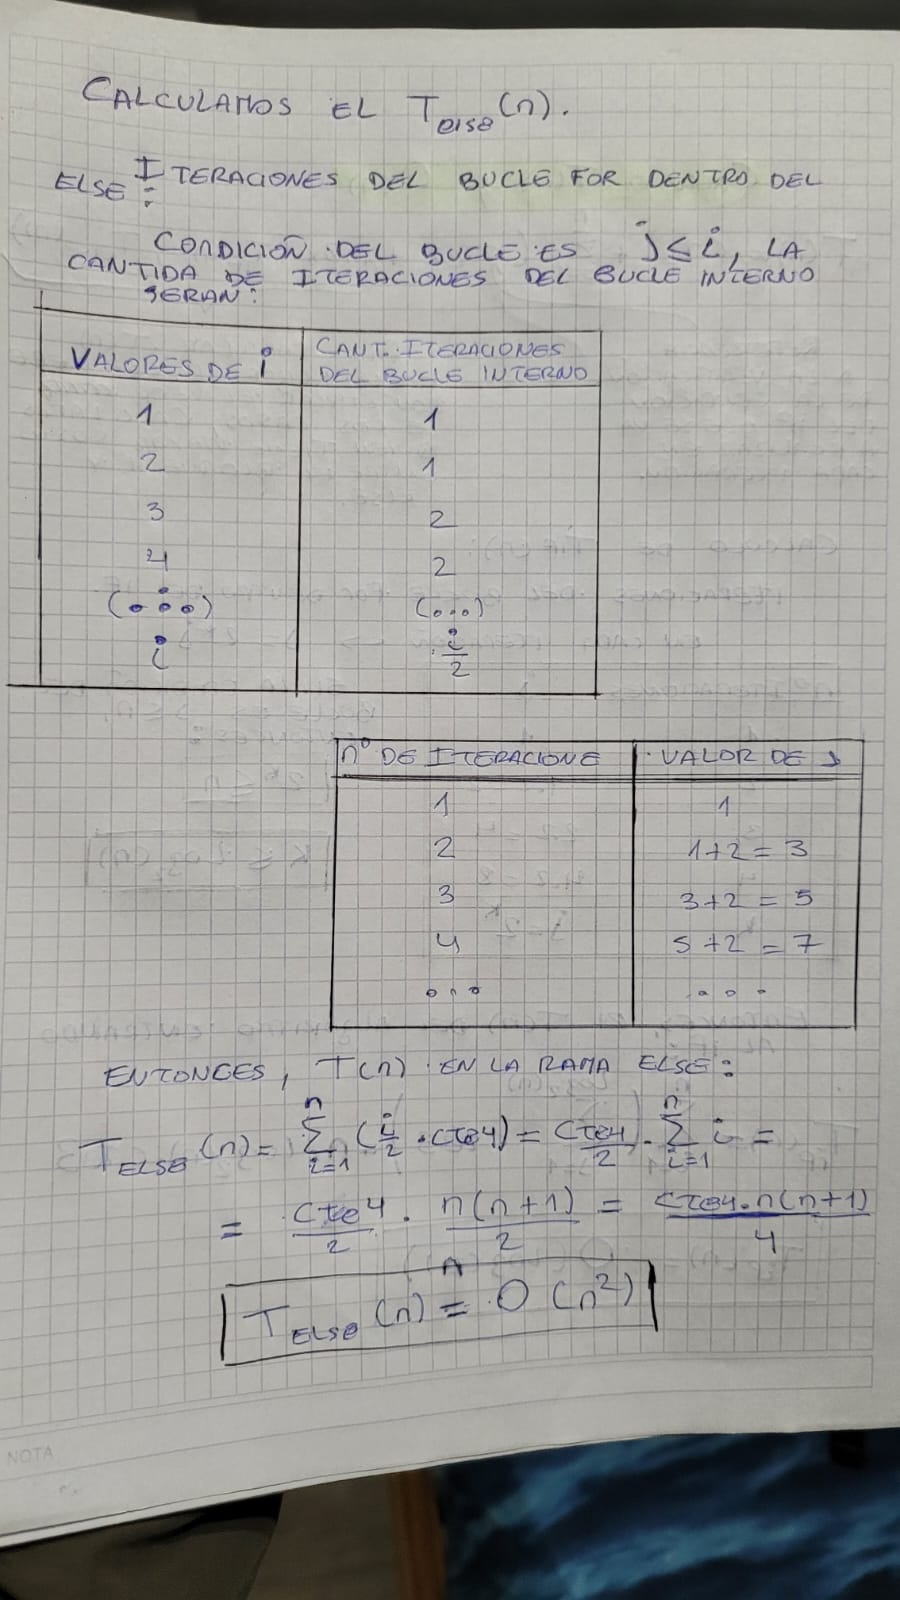 CALCULAMOS EL Telse(n).
ELSE: ITERACIONES DEL BUCLE FOR DENTRO DEL
CONDICIÓN DEL BUCLE ES j ≤ i, LA
CANTIDA DE ITERACIONES DEL BUCLE INTERNO
SERAN:
VALORES DE i | CANT. ITERACIONES DEL BUCLE INTERNO
1 | 1
2 | 1
3 | 2
4 | 2
(...) | (...)
i | i/2
nº DE ITERACIONE | VALOR DE J
1 | 1
2 | 1+2 = 3
3 | 3+2 = 5
4 | 5+2 = 7
... | ...
ENTONCES, T(n) EN LA RAMA ELSE:
TELSE(n) = Σ_{i=1}^{n} (i/2 · cte4) = cte4/2 · Σ_{i=1}^{n} i =
= cte4/2 · n(n+1)/2 = cte4·n(n+1)/4
TELSE(n) ≙ O(n²)
NOTA